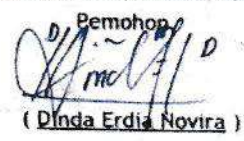 Pemohon
( Dinda Erdia Novira )